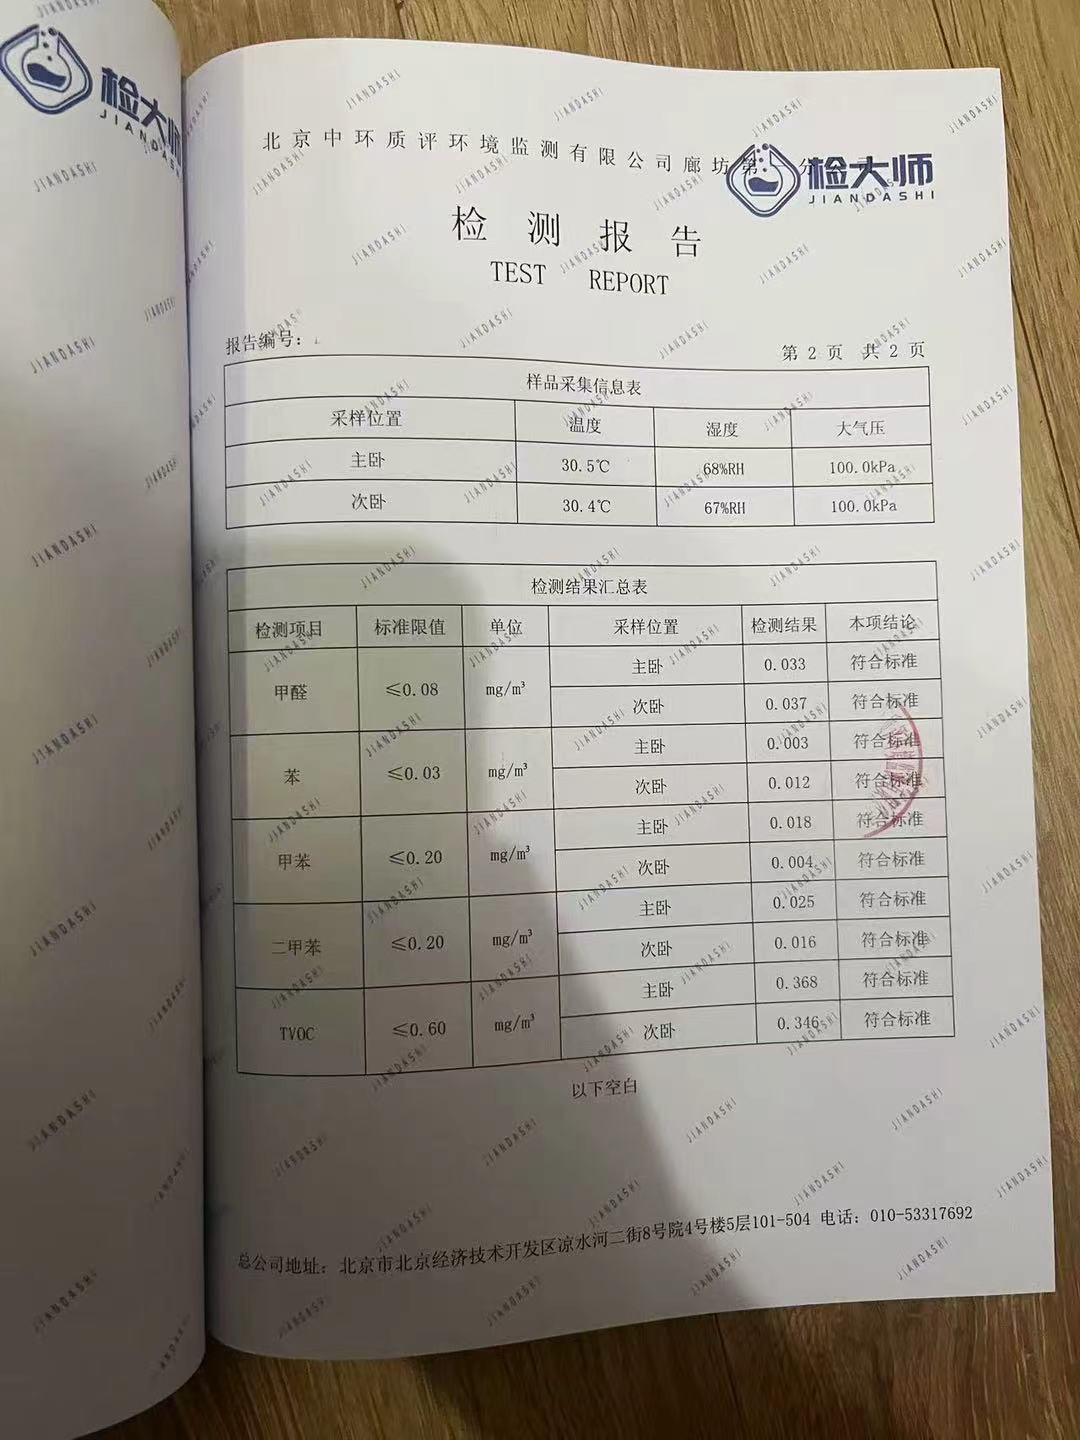 检大师
JIANDASHI
北京中环质评环境监测有限公司廊坊第一分公司
检大师
JIANDASHI
检 测 报 告
TEST REPORT
报告编号:
第 2 页 共 2 页
样品采集信息表
采样位置 温度 湿度 大气压
主卧 30.5℃ 68%RH 100.0kPa
次卧 30.4℃ 67%RH 100.0kPa
检测结果汇总表
检测项目 标准限值 单位 采样位置 检测结果 本项结论
甲醛 ≤0.08 mg/m³ 主卧 0.033 符合标准
次卧 0.037 符合标准
苯 ≤0.03 mg/m³ 主卧 0.003 符合标准
次卧 0.012 符合标准
甲苯 ≤0.20 mg/m³ 主卧 0.018 符合标准
次卧 0.004 符合标准
二甲苯 ≤0.20 mg/m³ 主卧 0.025 符合标准
次卧 0.016 符合标准
TVOC ≤0.60 mg/m³ 主卧 0.368 符合标准
次卧 0.346 符合标准
以下空白
总公司地址：北京市北京经济技术开发区凉水河二街8号院4号楼5层101-504 电话：010-53317692